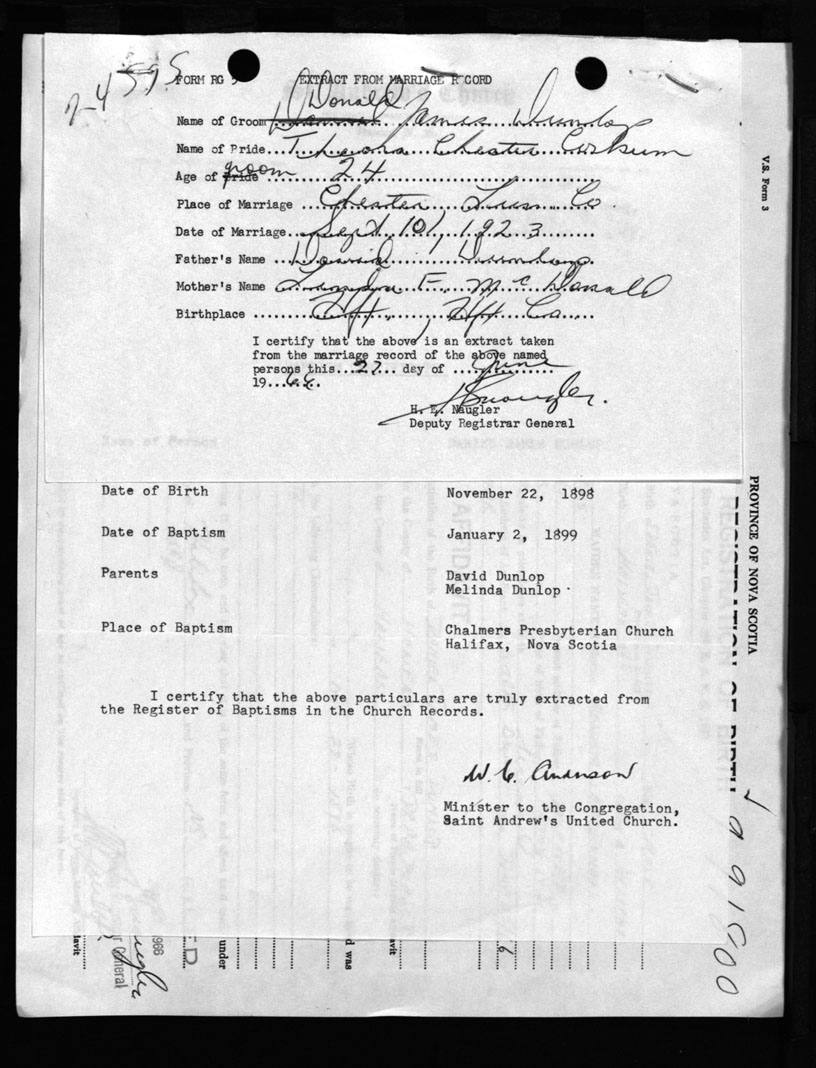 24595
FORM RG 5 EXTRACT FROM MARRIAGE RECORD
Donald
Name of Groom James Dunlop
Name of Pride Chester Corkum
groom
Age of Pride 24
Place of Marriage Chester Lun Co
Date of Marriage Sept 10, 1923
Father's Name David Dunlop
Mother's Name F. McDonald
Birthplace Hfx. Hfx Co.
I certify that the above is an extract taken
from the marriage record of the above named
persons this 27 day of June
1966.
H. E. Naugler
H. E. Naugler
Deputy Registrar General
Date of Birth November 22, 1898
Date of Baptism January 2, 1899
Parents David Dunlop
Melinda Dunlop
Place of Baptism Chalmers Presbyterian Church
Halifax, Nova Scotia
I certify that the above particulars are truly extracted from
the Register of Baptisms in the Church Records.
W. C. Anderson
Minister to the Congregation,
Saint Andrew's United Church.
V.S. Form 3
PROVINCE OF NOVA SCOTIA
REGISTRATION OF BIRTH
991500
under
d was